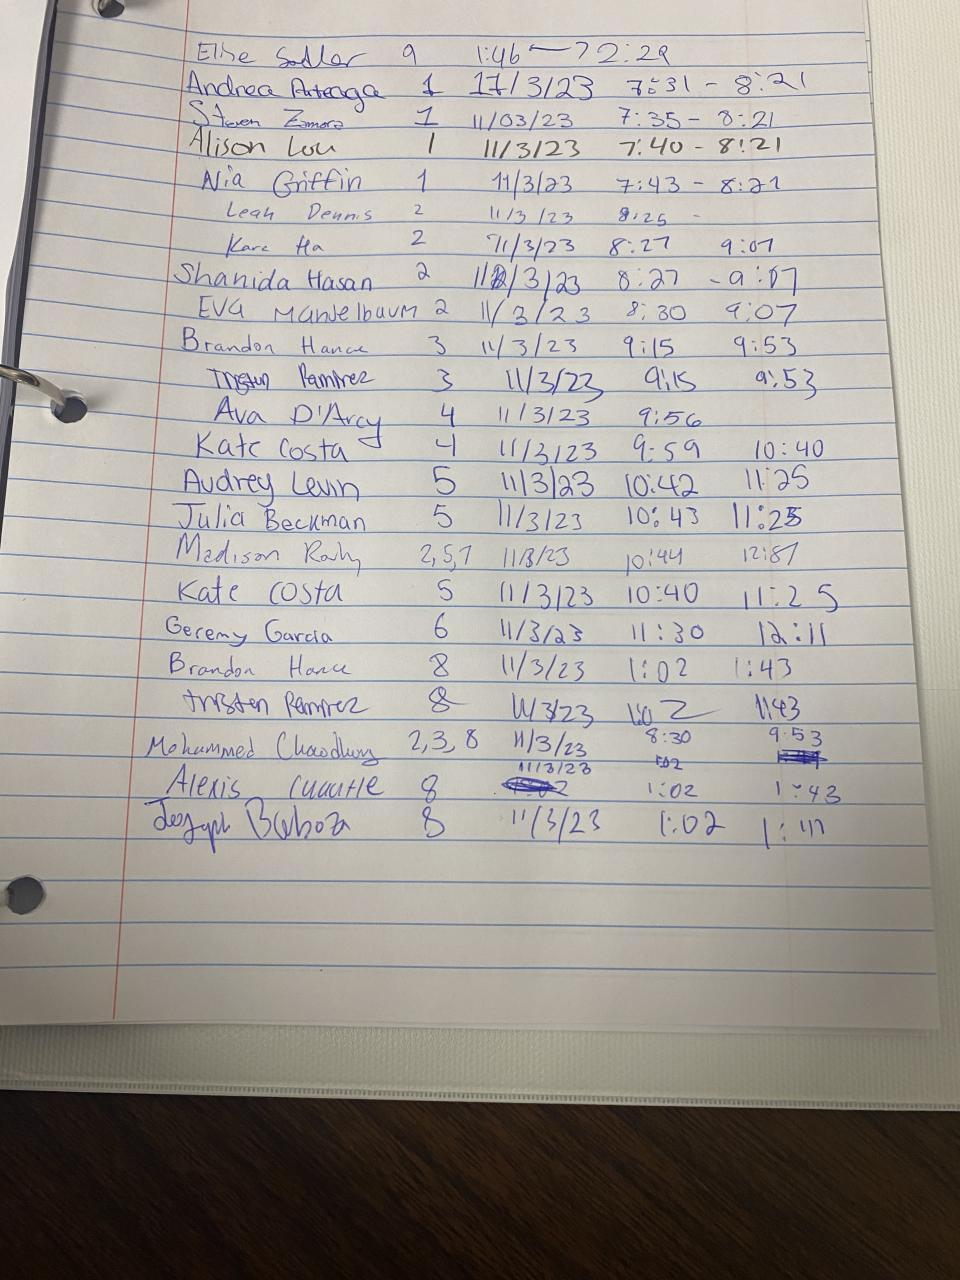 Elise Sadler 9 1:46 → 2:29
Andrea Arteaga 1 11/3/23 7:31 - 8:21
Steven Zamora 1 11/03/23 7:35 - 8:21
Alison Lou 1 11/3/23 7:40 - 8:21
Nia Griffin 1 11/3/23 7:43 - 8:21
Leah Dennis 2 11/3/23 8:25 -
Kara Ha 2 11/3/23 8:27 9:07
Shanida Hasan 2 11/3/23 8:27 - 9:07
EVA MANdElbAUM 2 11/3/23 8:30 9:07
Brandon Hance 3 11/3/23 9:15 9:53
Tristen Ramirez 3 11/3/23 9:15 9:53
Ava D'Arcy 4 11/3/23 9:56
Kate Costa 4 11/3/23 9:59 10:40
Audrey Levin 5 11/3/23 10:42 11:25
Julia Beckman 5 11/3/23 10:43 11:25
Madison 2,5,7 11/3/23 10:44
Kate Costa 5 11/3/23 10:40 11:25
Geremy Garcia 6 11/3/23 11:30 12:11
Brandon Hance 8 11/3/23 1:02 1:43
tristen Ramirez 8 11/3/23 1:02 1:43
Mohammed Chowdhury 2,3,8 11/3/23 8:30 9:53
1:02
Alexis Cuautle 8 11/3/23 1:02 1:43
Joseph Barboza 8 11/3/23 1:02